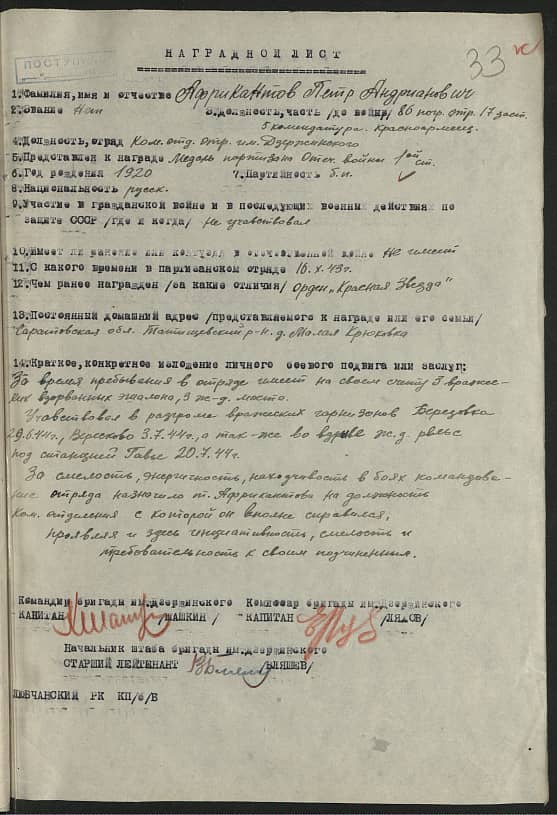 ПОСТУП
НАГРАДНОЙ ЛИСТ
33
1.Фамилия, имя и отчество Африкантов Петр Андрианович
2.Звание Нач 3.Должность, часть /до войны/ 86 погр. отр. 17 заст.
5 комендатура. Красноармеец.
4.Должность, отряд Ком. отд. отр. им. Дзержинского
5.Представлен к награде Медаль партизана Отеч. войны 1ой ст.
6.Год рождения 1920 7.Партийность б.п.
8.Национальность русск.
9.Участие в гражданской войне и в последующих военных действиях по
защите СССР /где и когда/ Не учавствовал
10.Имеет ли ранение или контузию в отечественной войне Не имеет
11.С какого времени в партизанском отряде 16.X.43г.
12.Чем ранее награжден /за какие отличия/ Орден „Красная Звезда"
13.Постоянный домашний адрес /представляемого к награде или его семьи/
Саратовская обл. Татищевский р-н. д. Малая Крюковка
14.Краткое, конкретное изложение личного боевого подвига или заслуг:
За время пребывания в отряде имеет на своем счету 5 вражес-
ких взорванных эшалона, 3 ж-д. моста.
Учавствовал в разгроме вражеских гарнизонов Березовка
29.6.44г., Вересково 3.7.44г., а так-же во взрыве ж.д. рельс
под станцией Гавье 20.7.44г.
За смелость, энергичность, находчивость в боях командова-
ние отряда назначило т. Африкантова на должность
ком. отделения с которой он вполне справился,
проявляя и здесь инициативность, смелость и
требовательность к своим подчиненным.
Командир бригады им.Дзержинского Комиссар бригады им.Дзержинского
КАПИТАН /МАШКИН/ КАПИТАН /ЛЯДОВ/
Начальник штаба бригады им.Дзержинского
СТАРШИЙ ЛЕЙТЕНАНТ /БЛЯШЕВ/
ЛЮБЧАНСКИЙ РК КП/б/Б